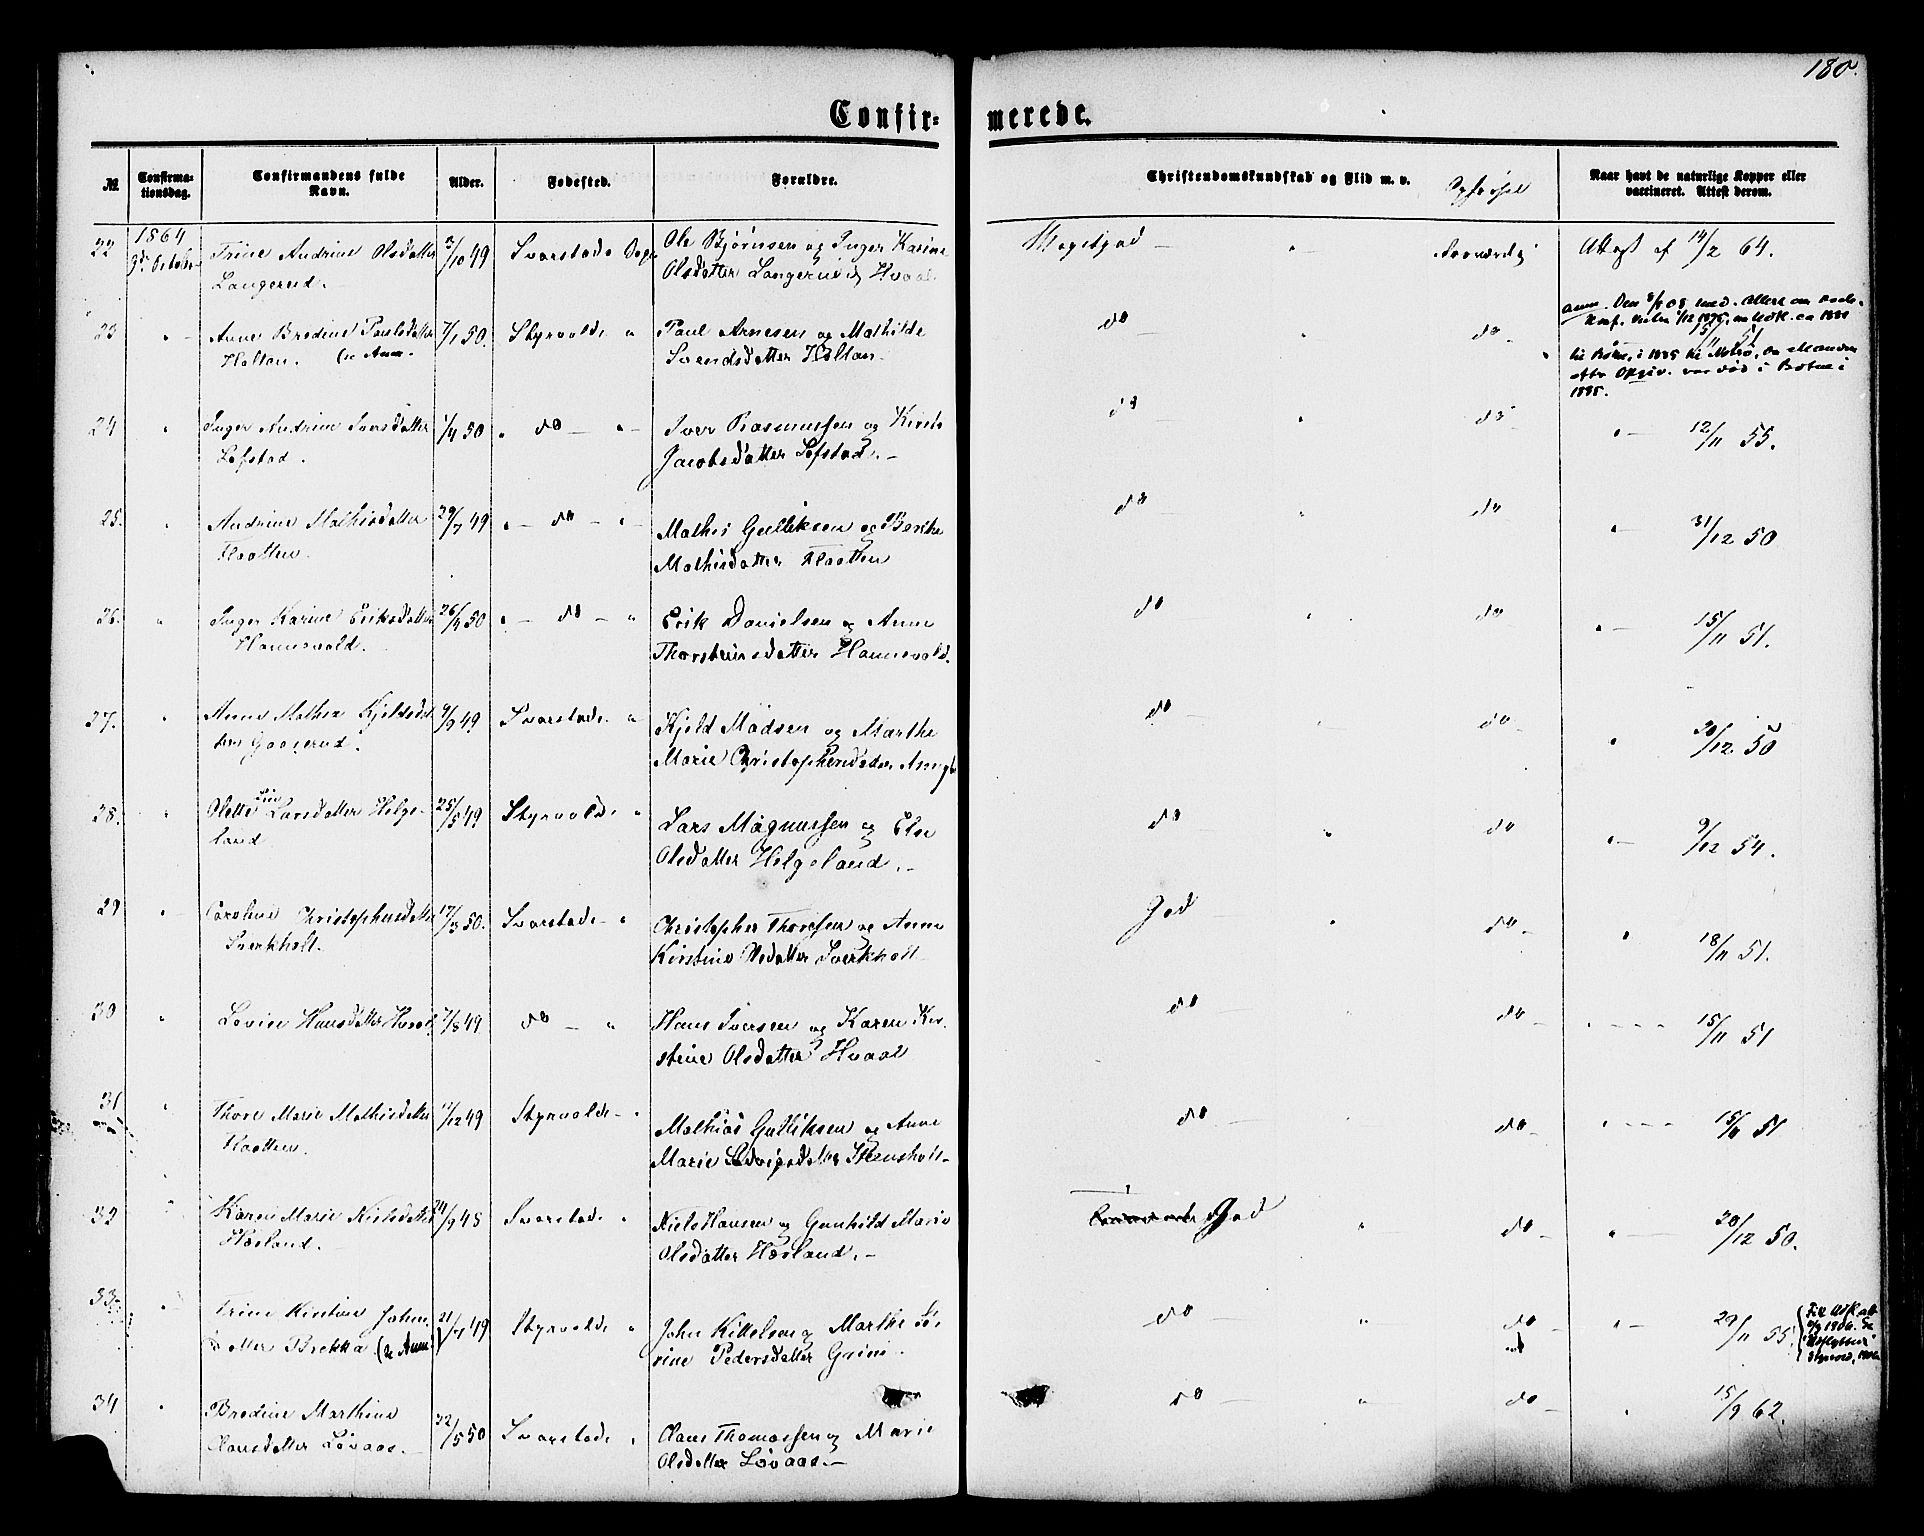 180.
Confir= merede.
№
Confirma-
tionsdag.
Confirmandens fulde
Navn.
Alder.
Fødested.
Forældre.
Christendomskundskab og Flid m. v.
Opførsel
Naar havt de naturlige Kopper eller
vaccineret. Attest derom.
1864
22 Trine Andrine Olsdatter 3/10 49 Svarstads Ole Bjørnsen og Inger Karine Megetgod — " Attest af 14/2 64.
Langerud. Olsdatter Langerud Hvaal
23 " Anne Bredine Paulsdatter 7/1 50. Styrvolds " Paul Arnesen og Mathilde do — " do — 5/11 51
Holtan. (se Anm. Svendsdatter Holtan.
1885.
24 " Inger Andrine Iversdatter 1/4 50 " do — " Iver Rasmussen og Kirsti do " do " — 12/11 55.
Lofstad. Jacobsdatter Lofstad. —
25. " Andrine Mathisdatter 29/7 49 " — do — " Mathis Gulliksen og Berthe do — " do " — 31/12 50
Flaatten. Mathisdatter Flaatten
26. " Inger Karine Eriksdatter 26/4 50 " — do — " Erik Danielsen og Anne do — " do " — 15/11 51.
Hannevold. Thorsteinsdatter Hannevold.
27. " Anne Mathea Kjeldsdat 9/9 49 Svarstads " Kjeld Madsen og Marthe do — " do — " 20/12 50
ter Gaaserud. Marie Christophersdatter
28. " Olette Lise Larsdatter Helge- 25/5 49 Styrvolds " Lars Magnussen og Else do " do " — 9/12 54.
land Olsdatter Helgeland. —
29 " Caroline Christophersdatter 17/3 50. Svarstads " Christopher Thoresen og Anne God " do — " 18/11 51.
Sverkholt. Kirstine Sverkholt
30 " Lovise Hansdatter Hvaal 7/8 49 do — " Hans Iversen og Karen Kir- do — " do — " 15/11 51
stine Olsdatter Hvaal
31 " Thore Marie Mathisdatter 12/12 49 Styrvolds " Mathias Gulliksen og Anne do — do — " 15/11 51
Flaatten. Marie Stensholt
32 " Karen Marie Nielsdatter 24/9 48 Svarstads " Niels Hansen og Gunhild Marie God " do — " 20/12 50.
Hæsland. Olsdatter Hæsland. —
33 " Trine Kirstine Johns 21/7 49 Styrvolds " John Kittelsen og Marthe Sø- do — " do — " — 29/11 55.
datter Brekka (se Anm. rine Pedersdatter Grini.
34 " Bredine Marthine 22/5 50 Svarstads " Claus Thomassen og Marie do — " do — " 15/9 62.
Clausdatter Løvaas. — Olsdatter Løvaas. —